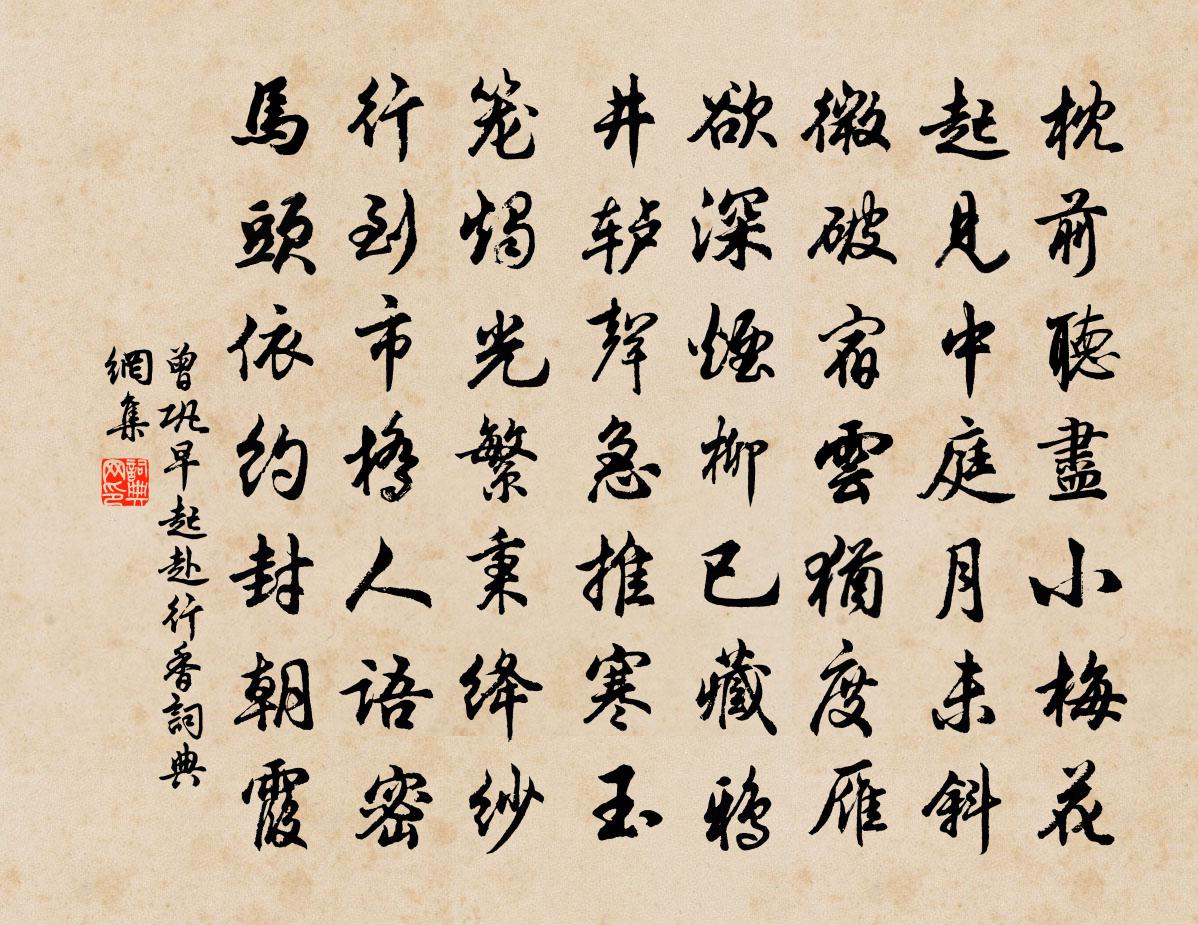 枕前聽盡小梅花
起見中庭月未斜
微破宿雲猶度雁
欲深煙柳已藏鴉
井轳聲急推寒玉
笼燭光繁秉绛紗
行到市橋人語密
馬頭依約封朝霞
曾巩早起赴行香詞典
網集
詞典网印